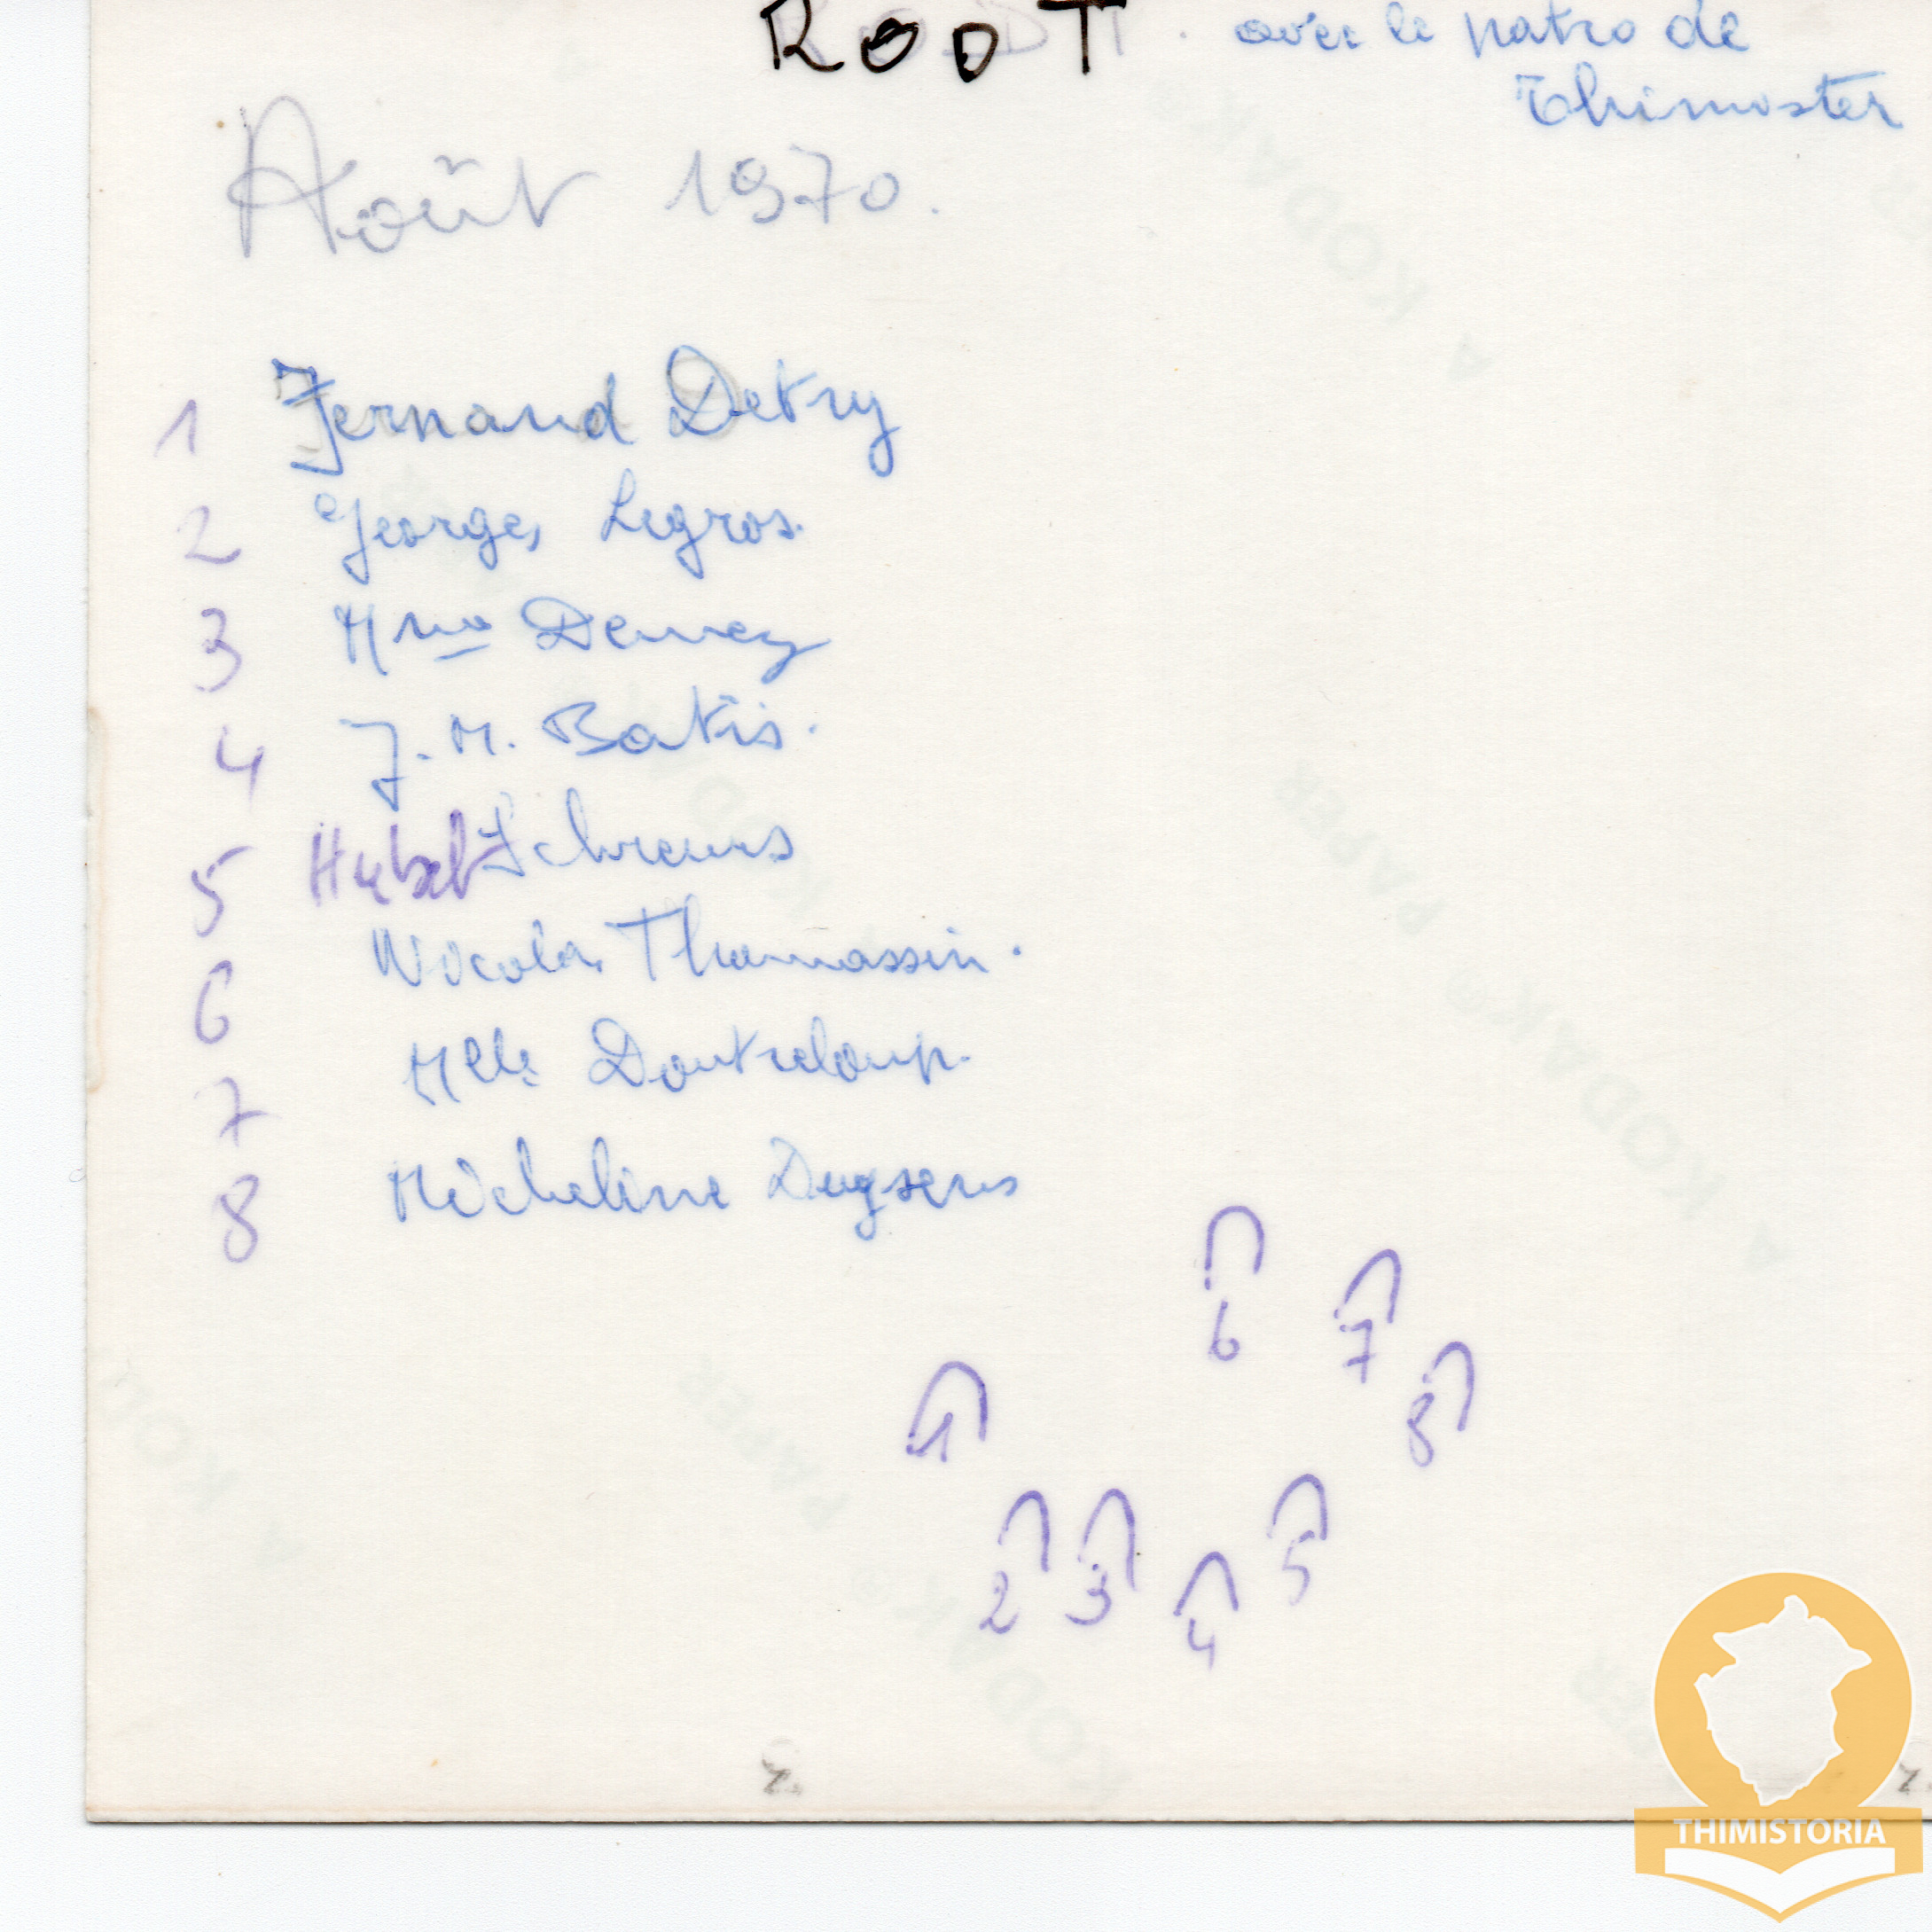 ROOT. avec le patro de
Thimister
Août 1970.
1 Fernand Detry
2 Georges Legros.
3 Mme Demey
4 J. M. Batis.
5 Hubert Schreurs
6 Nicolas Thomassin.
7 Melle Doutreloup.
8 Micheline Duysens
6
7
8
1
2 3
4
5
THIMISTORIA